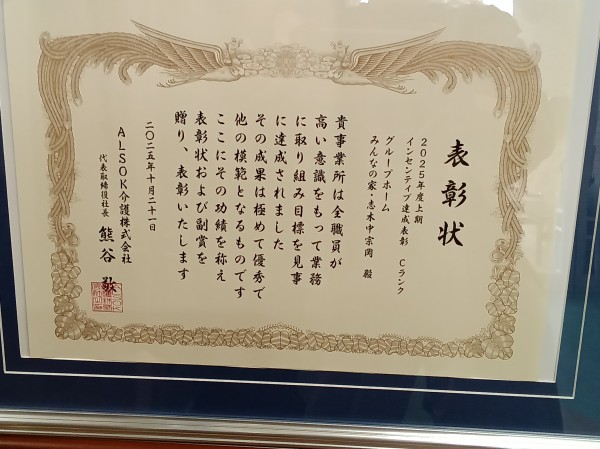 表彰状
2025年度上期
インセンティブ達成表彰 Cランク
グループホーム
みんなの家・志木中宗岡 殿
貴事業所は全職員が
高い意識をもって業務
に取り組み目標を見事
に達成されました
その成果は極めて優秀で
他の模範となるものです
ここにその功績を称え
表彰状および副賞を
贈り、表彰いたします
二〇二五年十月二十一日
ALSOK介護株式会社
代表取締役社長 熊谷 敬